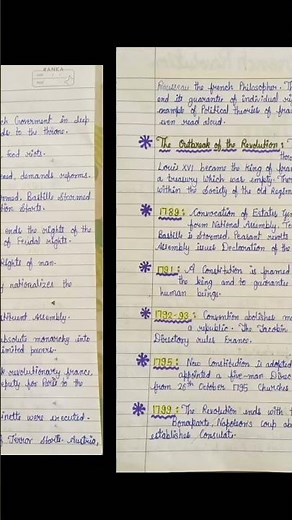 RANKA
ch Government in deep
ds to the throne.
food riots.
ed, demands reforms.
rmed. Bastille Stormed
tion Starts.
ends the rights of the
of Feudal rights.
Rights of man.
nationalizes the
Assembly.
absolute monarchy into
limited powers.
revolutionary france.
were executed.
Terror Starts. Austria,
Rousseau the french Philosopher. T
and its guarantee of individual ri
example of Political theories of fra
even read aloud.
The Outbreak of the Revolution :
thro
Louis XVI became the King of fran
a treasury which was empty. Ther
within the Society of the old Regim
1789 : Convocation of Estates Gen
form National Assembly. Te
Bastille is Stormed. Peasant revolts
Assembly issues Declaration of the
1791 : A Constitution is framed
the king and to guarantee
human beings.
1792-93 : Convention abolishes mo
a republic. The Jacobin
Directory rules France.
1795 : New Constitution is adopted
appointed a five-man Direc
from 26th October 1795 Churches
1799 : The Revolution ends with t
Bonaparte. Napoleon's Coup ab
establishes Consulate.